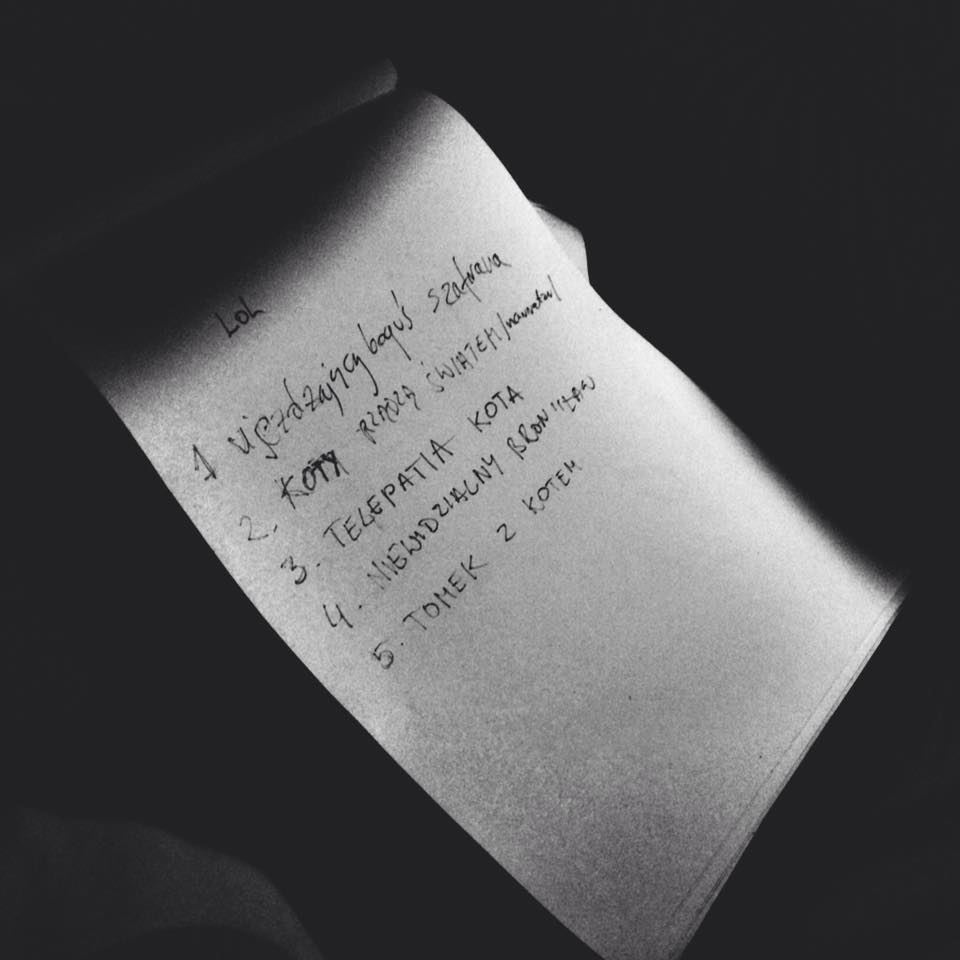 LOL
1 wjeżdżający boguś szafrana
2. KOTY RZĄDZĄ ŚWIATEM
3. TELEPATIA KOTA
4. NIEWIDZIALNY BRONISŁAW
5. TOMEK Z KOTEM